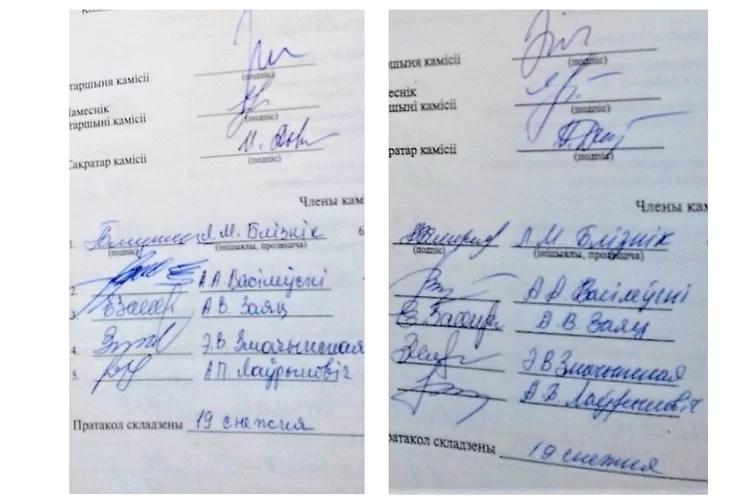 таршыня камісіі
(подпіс)
Намеснік
таршыні камісіі
(подпіс)
Сакратар камісіі
(подпіс)
Члены кам
1. Л.М. Блізнік
(подпіс) (ініцыялы, прозвішча)
2. А А Васілеўскі
3. А В. Заяц
4. Э.В Змачынская
5. А П. Лаўрыновіч
Пратакол складзены 19 снежня
ршыня камісіі
(подпіс)
еснік
ршыні камісіі
(подпіс)
ратар камісіі
(подпіс)
Члены кам
Л М. Блізнік
(подпіс) (ініцыялы, прозвішча)
А А Васілеўскі
А В. Заяц
Э В Змачынская
А В. Лаўрыновіч
ратакол складзены 19 снежня